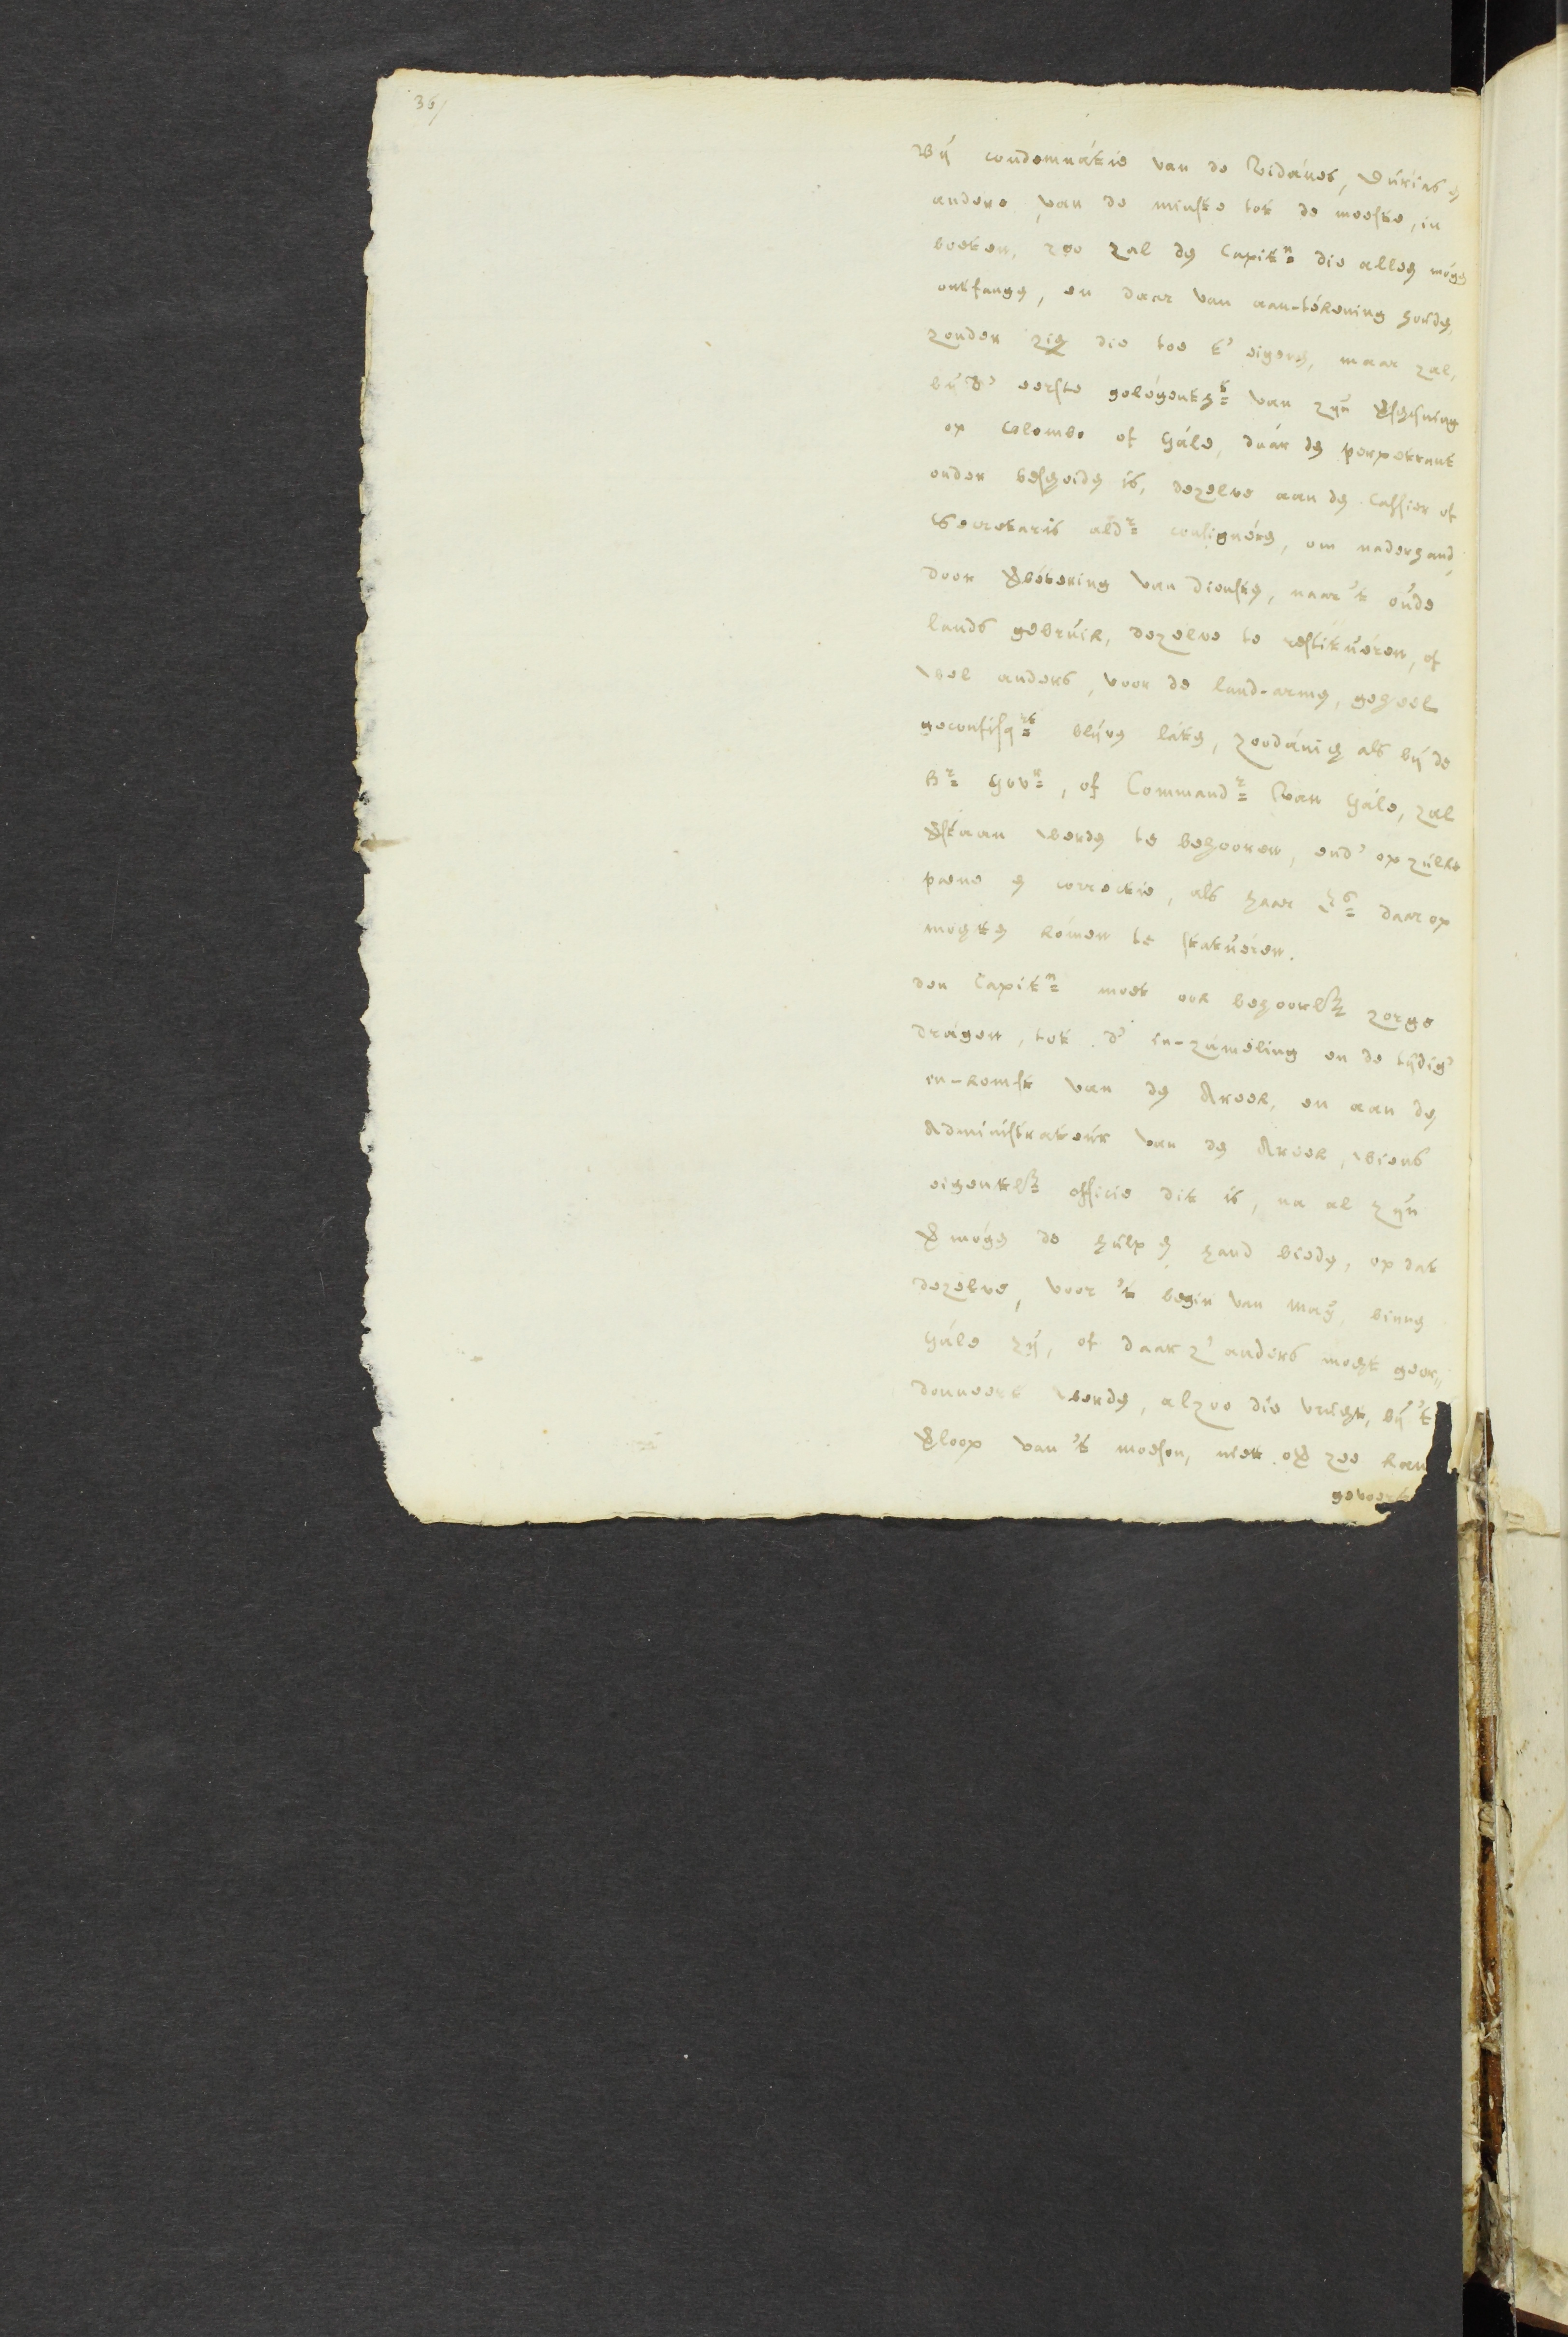 36/
Bij condemnátie van de Vidánes, Dúrias en
andere, van de minste tot de meeste, in
boeten, zoo zal den Capitn= die allen mógen
ontfangen, en daar van aan-tékening houden,
zonder zig die toe t' eigenen, maar zal,
bij d' eerste gelégenth:t van zijn verschijning
op Colombo of Gále, dáár den perpetrant
onder bescheiden is, dezelve aan den Cassier of
Secretaris aldr= consignéren, om naderhand,
door verbétering van diensten, naar 't oúde
lands gebrúik, dezelve te restitúéren, of
wel anders, voor de land-armen, geheel
geconfisqrt= blijven láten, zoodánig als bij de
Hr= Govr=, of Commandr= van Gále, zal
verstaan werden te behooren, end' op zúlke
paene en correctie, als haar Es= daar op
mogten kómen te statúéren.
den Capitn= moet ook behoorlijk zorge
drágen, tot d' in-zámeling en de tijdig'
in-komst van den Areek, en aan den
Administrateúr van den Areek, wiens
eigentlijk officie dit is, na al zijn
vermógen de húlp en hand bieden, op dat
dezelve, voor 't begin van Maij, binnen
Gále zij, of daar z' anders mogt geor„
donneert werden, alzoo die vrúgt, bij 't
verloop van 't moeson, niet over zee kan
gevoert